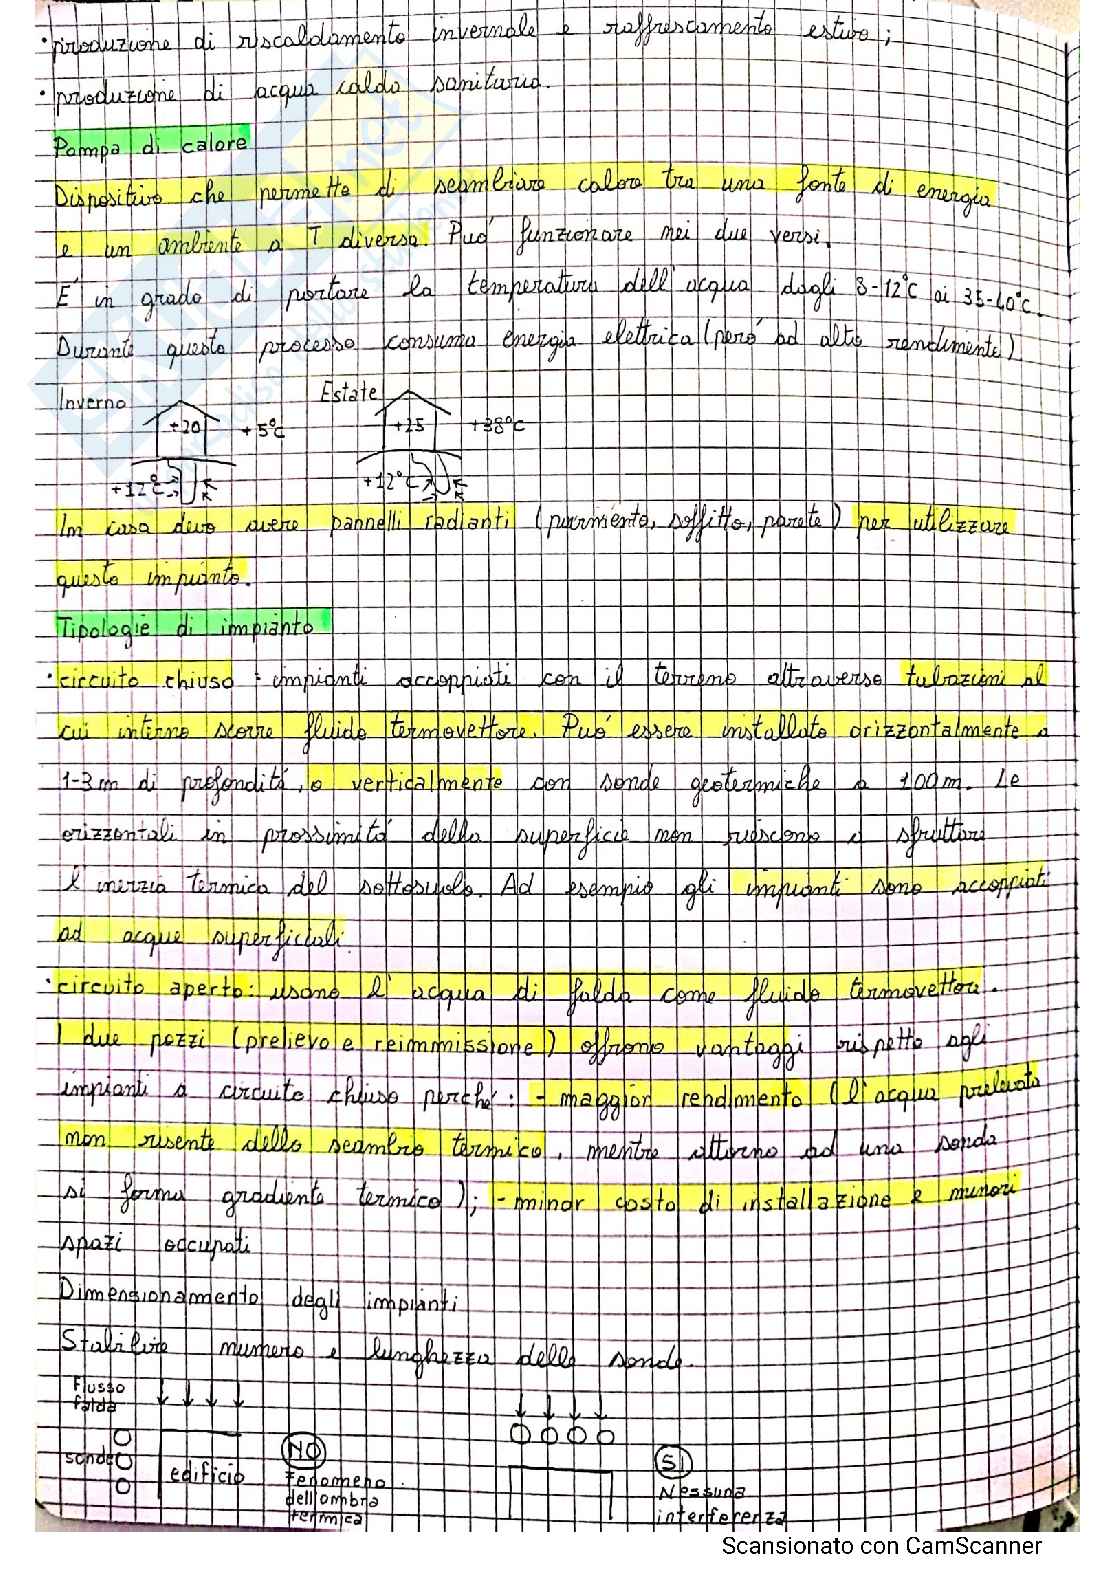 • produzione di riscaldamento invernale e raffrescamento estivo;
• produzione di acqua calda sanitaria.
Pompa di calore
Dispositivo che permette di scambiare calore tra una fonte di energia
e un ambiente a T diversa. Puó funzionare nei due versi.
É in grado di portare la temperatura dell'acqua dagli 8-12°C ai 35-40°C.
Durante questo processo consuma energia elettrica (peró ad alto rendimento)
Inverno
Estate
+20
+5°C
+25
+38°C
+12°C
+12°C
In casa devo avere pannelli radianti (pavimento, soffitto, parete) per utilizzare
questo impianto.
Tipologie di impianto
• circuito chiuso: impianti accoppiati con il terreno attraverso tubazioni al
cui interno scorre fluido termovettore. Puó essere installato orizzontalmente a
1-3 m di profonditá, o verticalmente con sonde geotermiche a 100 m. Le
orizzontali in prossimitá della superficie non riescono a sfruttare
l'inerzia termica del sottosuolo. Ad esempio gli impianti sono accoppiati
ad acque superficiali.
• circuito aperto: usano l'acqua di falda come fluido termovettore.
I due pozzi (prelievo e reimmissione) offrono vantaggi rispetto agli
impianti a circuito chiuso perché: - maggior rendimento (l'acqua prelevata
non risente dello scambio termico, mentre attorno ad una sonda
si forma gradiente termico); - minor costo di installazione e minori
spazi occupati
Dimensionamento degli impianti
Stabilire numero e lunghezza delle sonde.
Flusso
falda
sonde
edificio
NO
Fenomeno
dell'ombra
termica
SI
Nessuna
interferenza
Scansionato con CamScanner